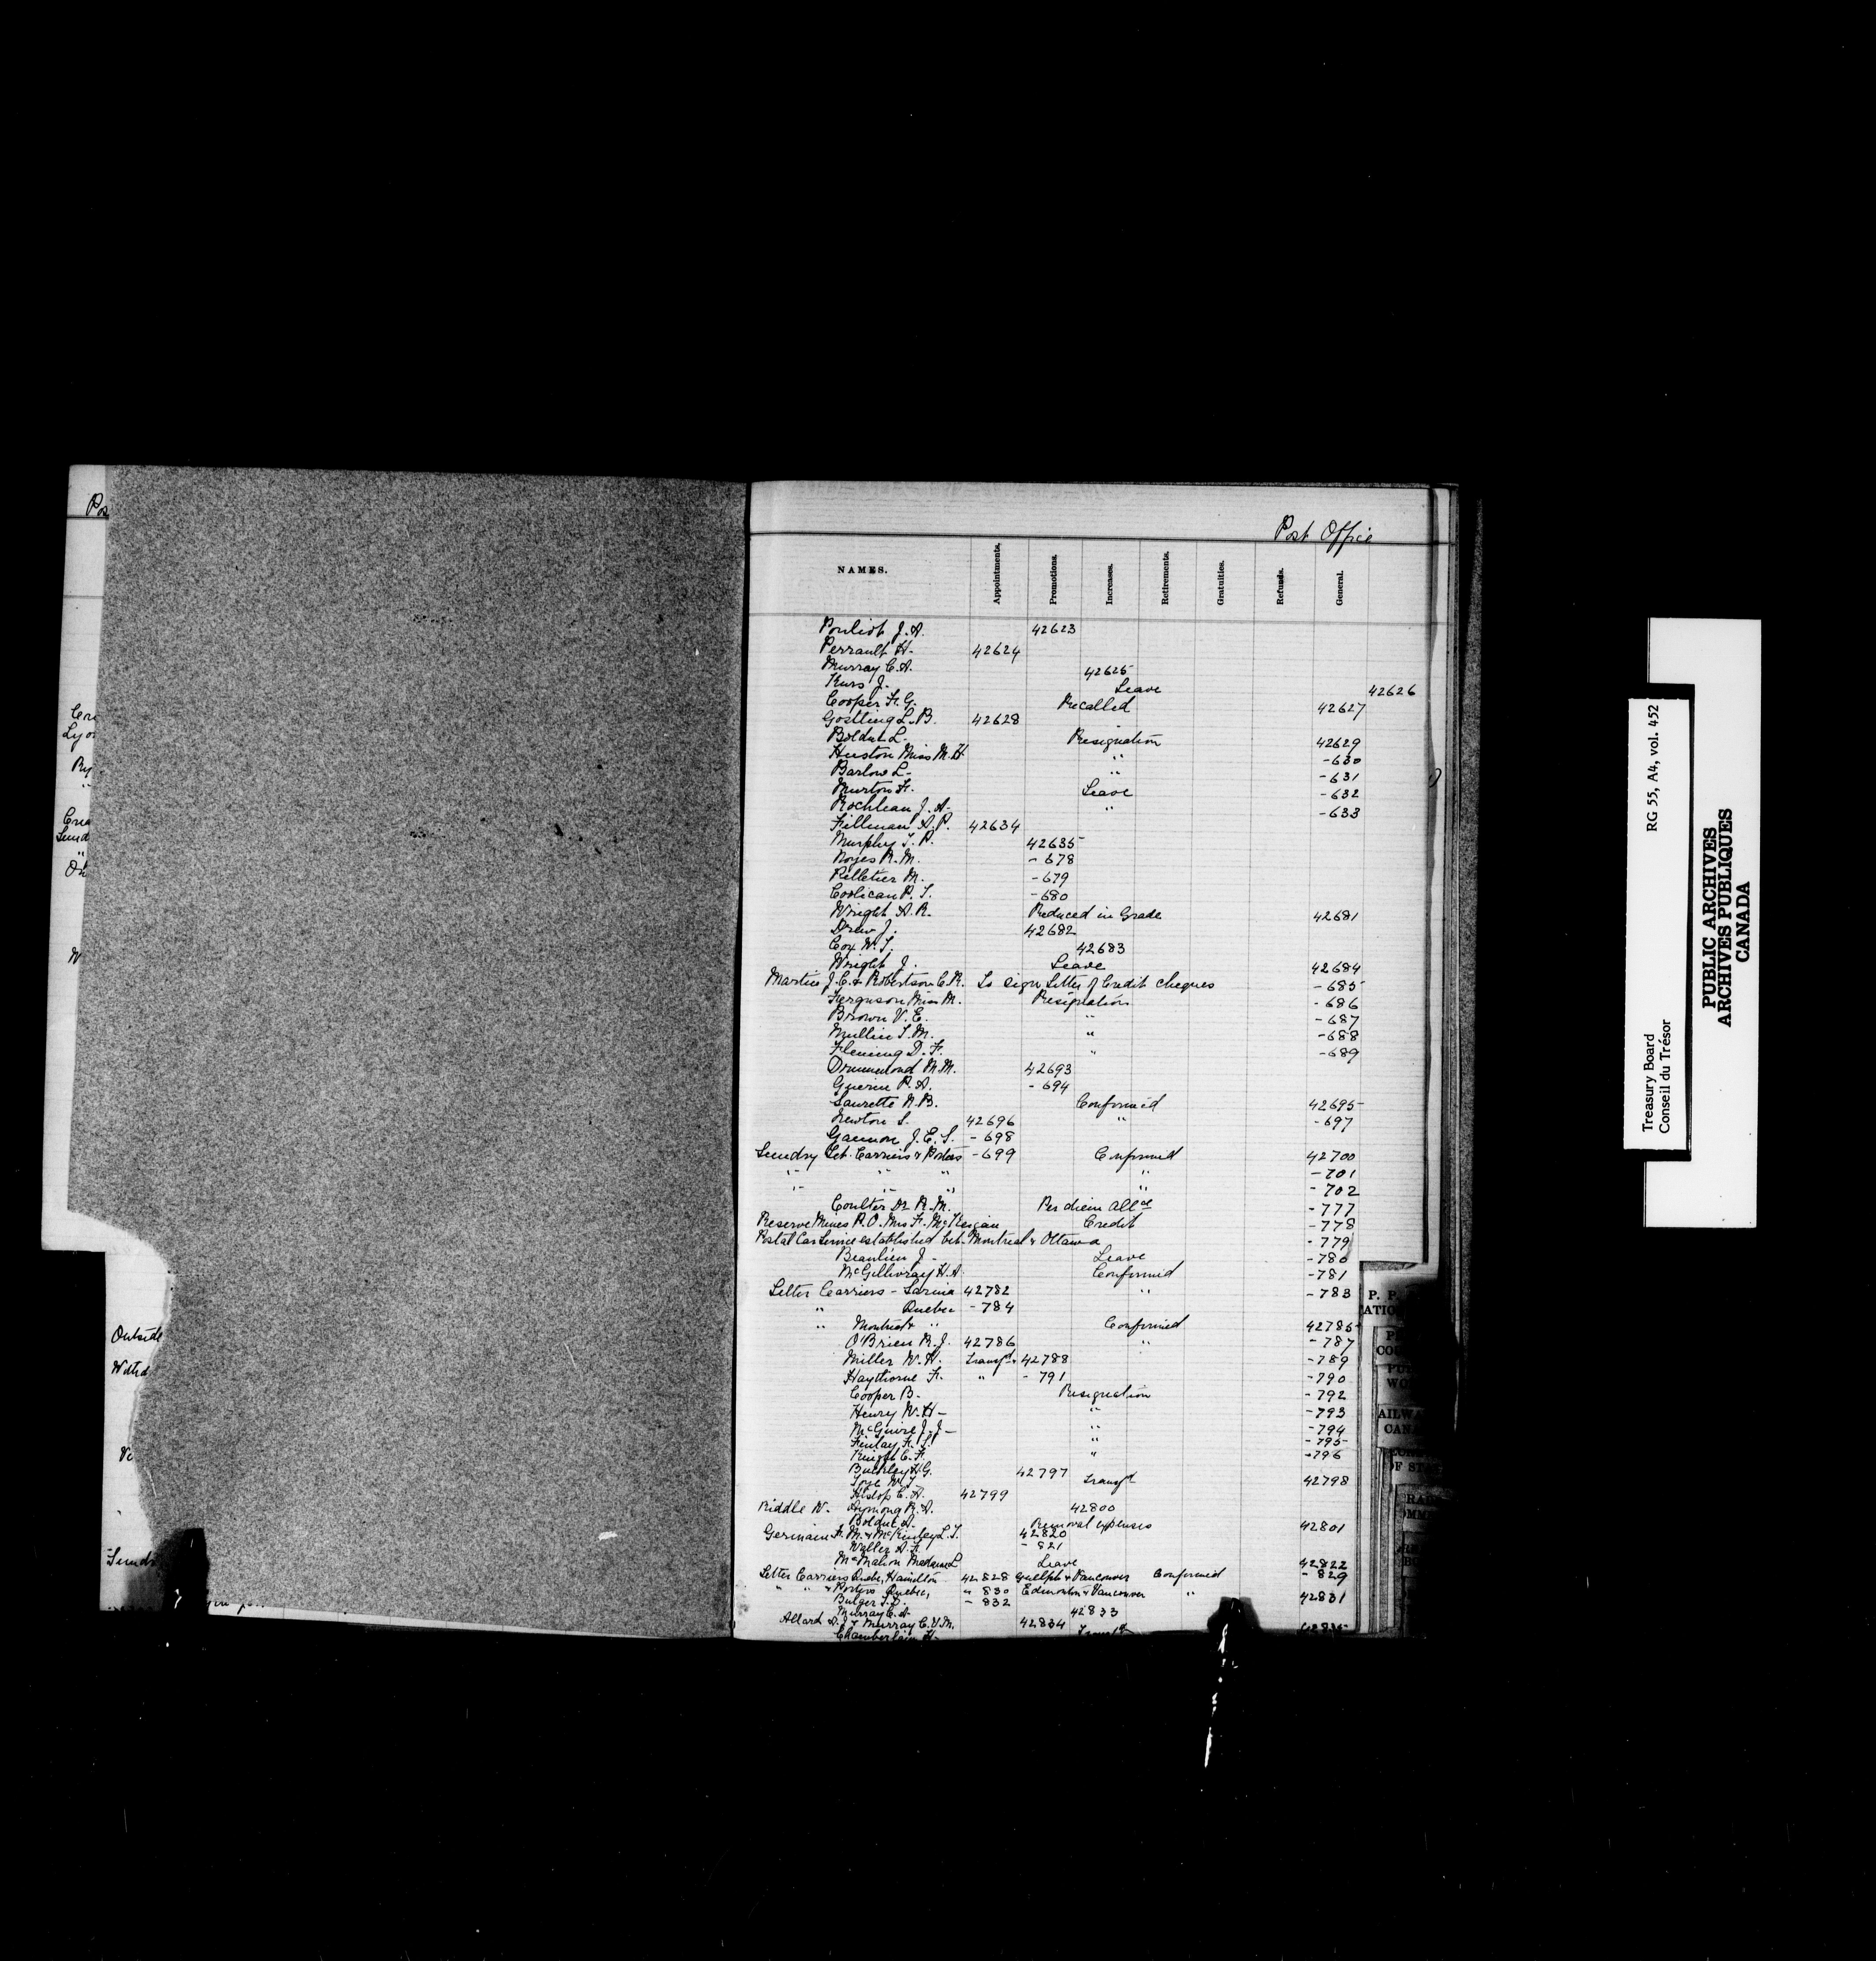 Pos
Post Office
NAMES. Appointments. Promotions. Increases. Retirements. Gratuities. Refunds. General.
Pouliot J. A. 42623
Perrault H. 42624
Murray C. A. 42625
Kurs J. Leave 42626
Cooper F. G. Recalled 42627
Gostling L. B. 42628
Bolduc L. Resignation 42629
Huston Miss M. H. " -630
Barlow L- " -631
Murton F. Leave -632
Rochleau J. A. " -633
Fillman A. P. 42634
Murphy T. P. 42635
Noyes R. M. -678
Pelletier M. -679
Coolican P. T. -680
Wright A. R. Reduced in Grade 42681
Drew J. 42682
Cox W. T. 42683
Wright J. Leave 42684
Martin J. C. & Robertson C. R. To sign Letter of Credit cheques -685
Ferguson Miss M. Resignation -686
Brown V. E. " -687
Mullin T. M. " -688
Fleming D. F. " -689
Drummond M. M. 42693
Guerin P. A. -694
Laurette N. B. Confirmed 42695
Newton S. 42696 " -697
Gannon J. E. S. -698
Sundry Let. Carriers & Porters -699 Confirmed 42700
" " " " -701
" " " " -702
Coulter Dr R. M. Per diem allce -777
Reserve Mines P.O. Mrs F. McKeigan Credit -778
Postal Car Service established bet. Montreal & Ottawa -779
Beaulieu J- Leave -780
McGillivray H. A. Confirmed -781
Letter Carriers - Sarnia 42782 " -783
" Quebec -784
" Montreal " Confirmed 42785
O'Brien R. J. 42786 " -787
Miller W. H. Transfd & 42788 -789
Haythorne F. " -791 -790
Cooper B- Resignation -792
Henry W. H- " -793
McGuire J. J- " -794
Finlay F. S. " -795
Knight C. F. " -796
Buckley H. G. 42797
W. T. Transfd 42798
Hislop C. A. 42799
Riddle W. Aymong R. A. 42800
Bolduc A. Removal expenses 42801
Germain F. M. & McKinley L. T. 42820
Waller A. F. -821
McMahon Madame L Leave 42822
Letter Carriers Quebec, Hamilton 42828 Guelph & Vancouver Confirmed -829
" " & Porters Quebec, " 830 Edmonton & Vancouver " 42831
Bulger T. P. -832
Murray C. A- 42833
Allard D. J. & Murray C. V. M. 42834
Chamberlain H- Transfd 42835
Outside
Treasury Board RG 55, A4, vol. 452
Conseil du Trésor
PUBLIC ARCHIVES
ARCHIVES PUBLIQUES
CANADA